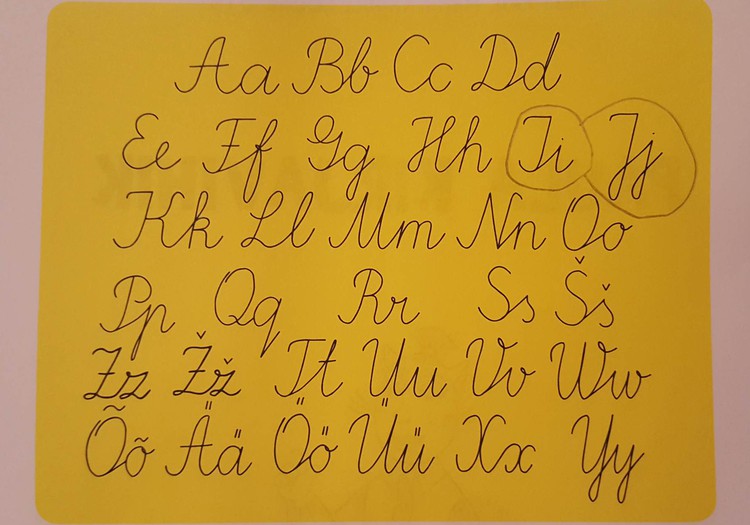 Aa Bb Cc Dd
Ee Ff Gg Hh Ii Jj
Kk Ll Mm Nn Oo
Pp Qq Rr Ss Šš
Zz Žž Tt Uu Vv Ww
Õõ Ää Öö Üü Xx Yy